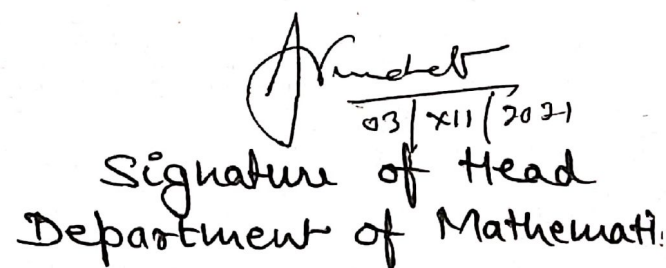 03/XII/2021
Signature of Head
Department of Mathemati